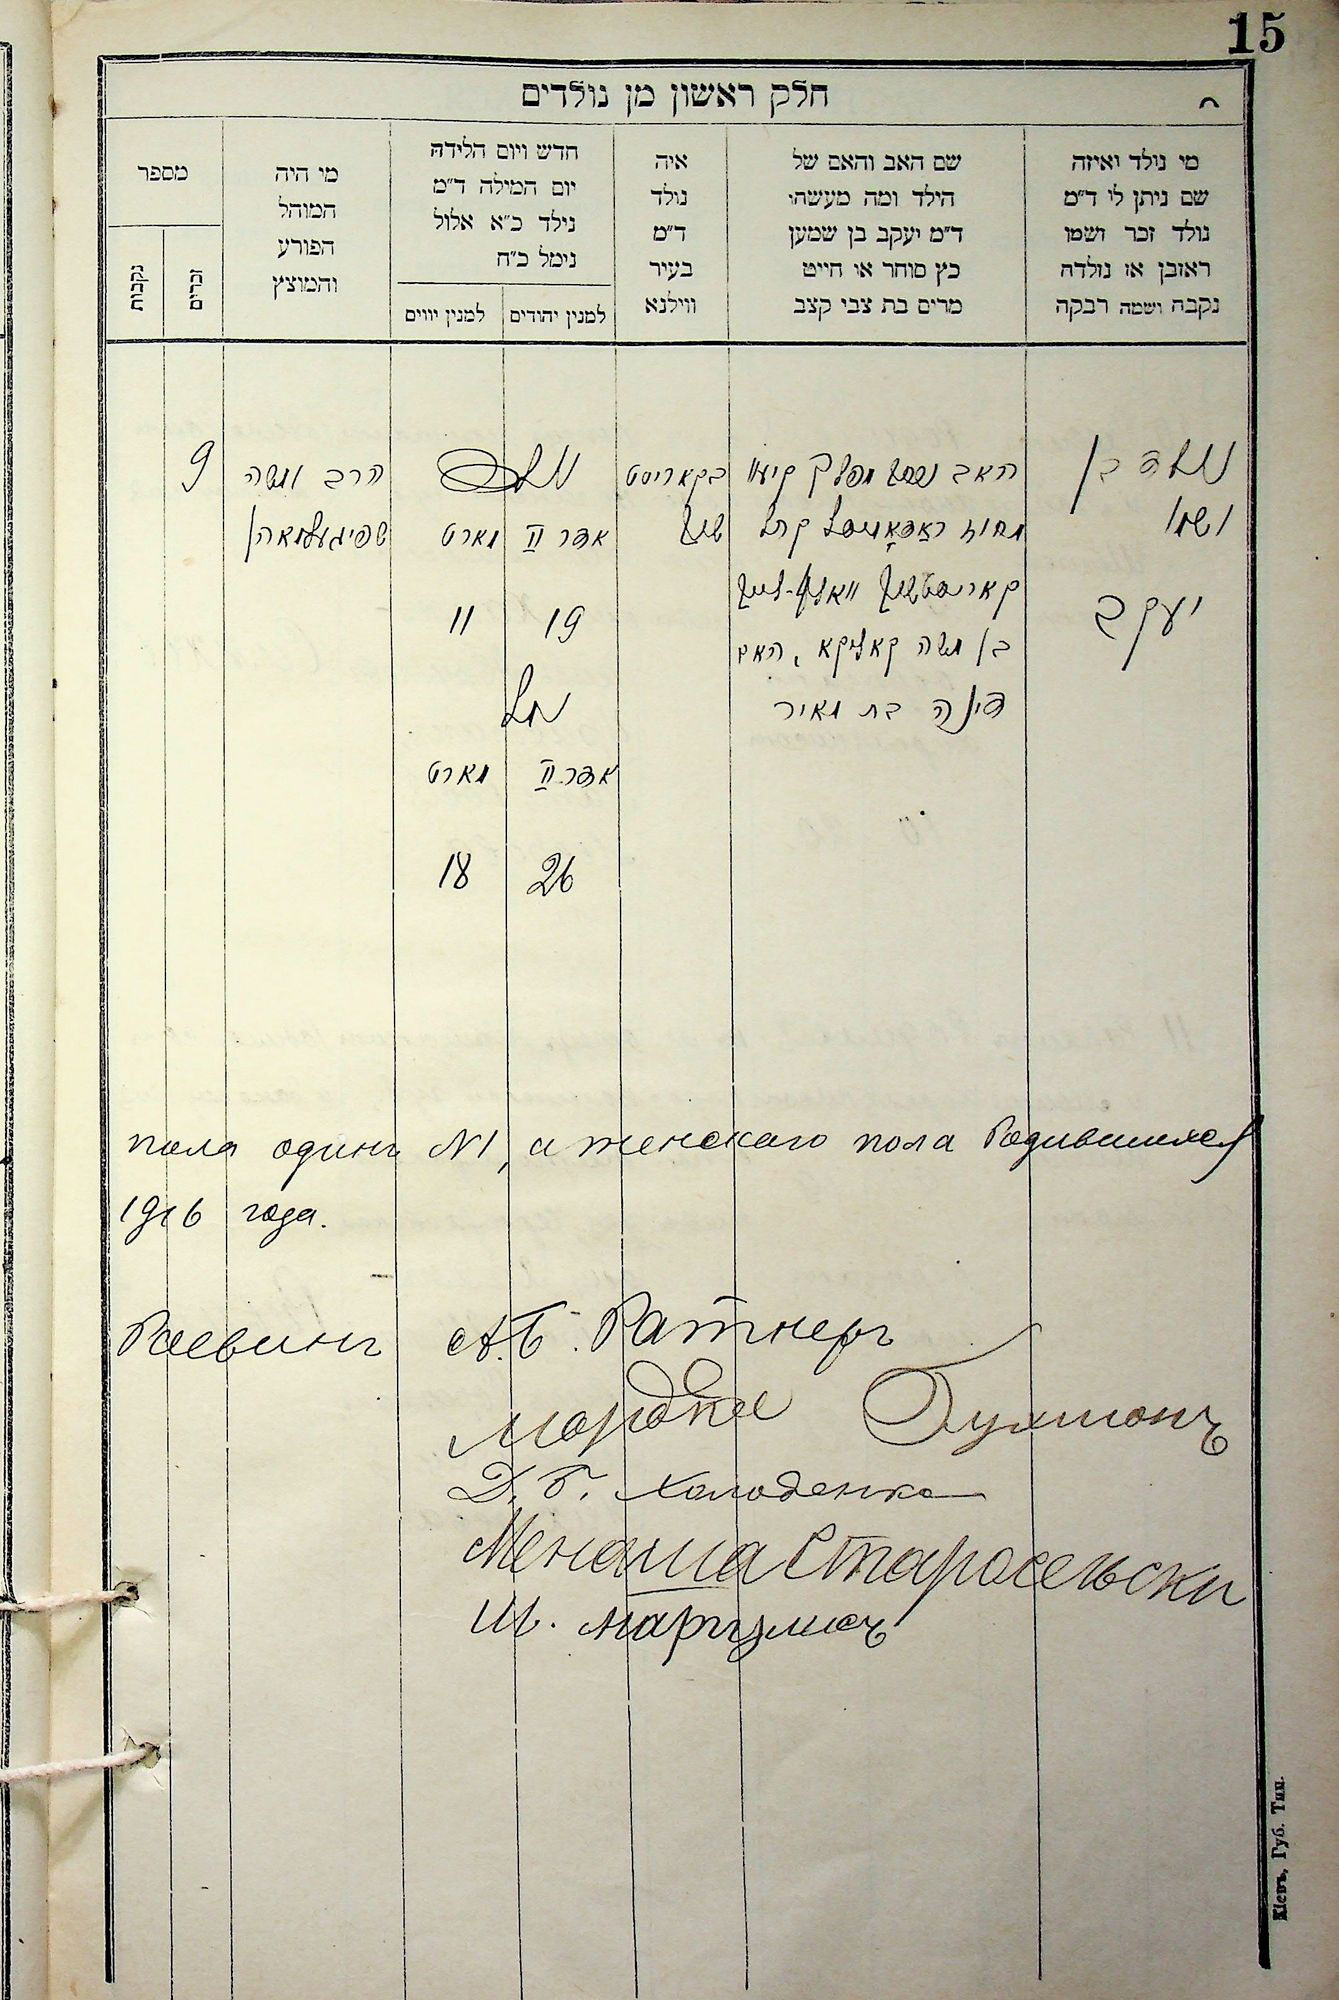 15
חלק ראשון מן נולדים
מי נולד ואיזה
שם ניתן לי ד"מ
נולד זכר ושמו
ראובן או נולדה
נקבה ושמה רבקה
שם האב והאם של
הילד ומה מעשהו
ד"מ יעקב בן שמעון
כץ סוחר או חייט
מרים בת צבי קצב
איה
נולד
ד"מ
בעיר
ווילנא
חדש ויום הלידה
יום המילה ד"מ
נילד כ"א אלול
נימל כ"ח
למנין יהודים
למנין יווים
מי היה
המוהל
הפורע
והמוצץ
מספר
זכרים
נקבות
נולד בן
ושמו
יעקב
האב מפלך קיעוו
מחוז קהל
וואלף-לייב
בן משה קאליקא, האם
דינה בת מאיר
נולד
אדר II מארט
19 11
נמל
אדר II מארט
26 18
הרב משה
שפיגעלמאהן
9
пола одинъ № 1, а женскаго пола родившихся
1916 года.
Раевинъ
А.Б. Ратнеръ
Мордко Гухманъ
Д. Б. Холоденко
Менаша Старосельски
Ш. Маргулисъ
Кіевъ, Губ. Тип.